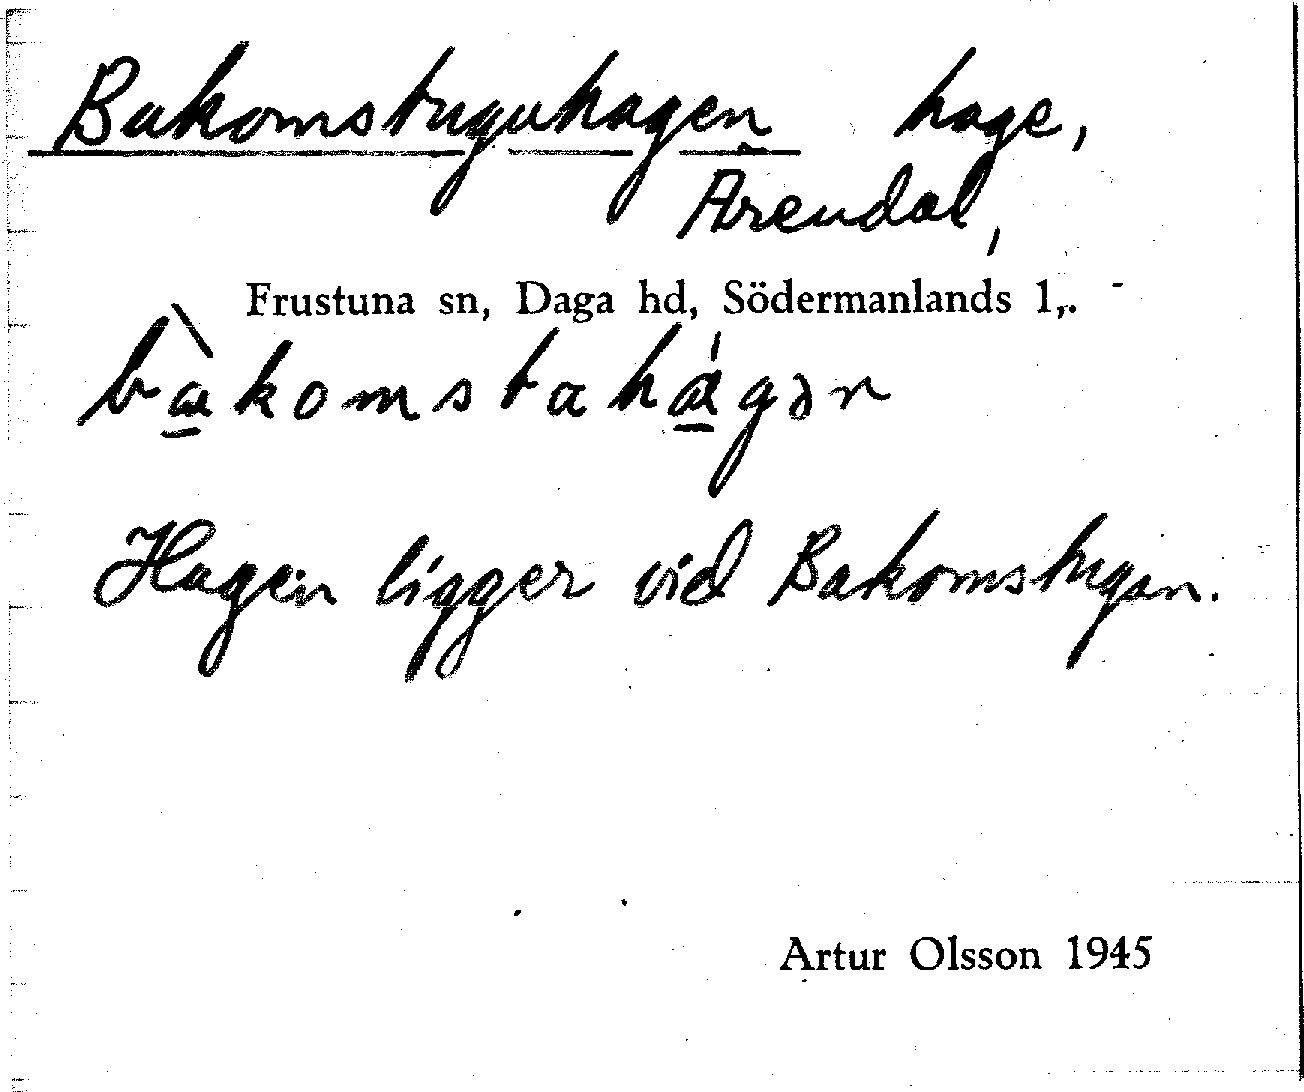 Bakomstuguhagen hage,
Arendal,
Frustuna sn, Daga hd, Södermanlands l.
bàkomstahágən
Hagen ligger vid Bakomstugan.
Artur Olsson 1945